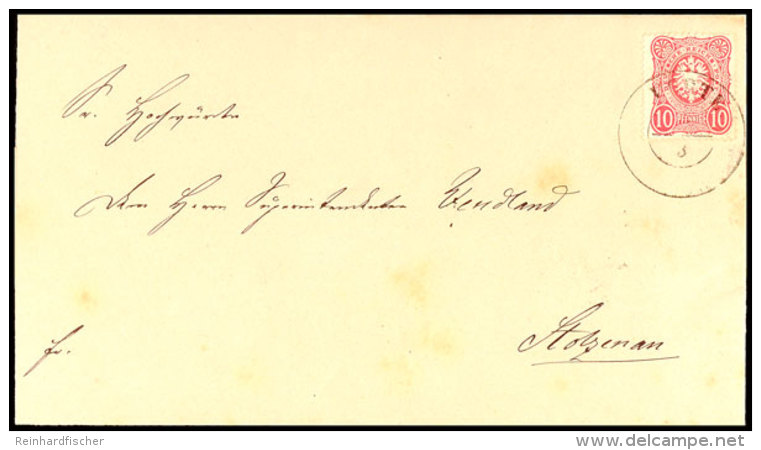 Sr. Hochwürden
Dem Herrn Superintendenten Wendland
Stolzenau
fr.
10 10
PFENNIG
8
Reinhardfischer
© www.delcampe.net